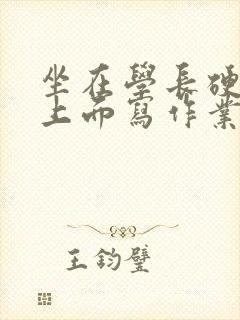 坐在學長硬
上面寫作業
王鈞璧